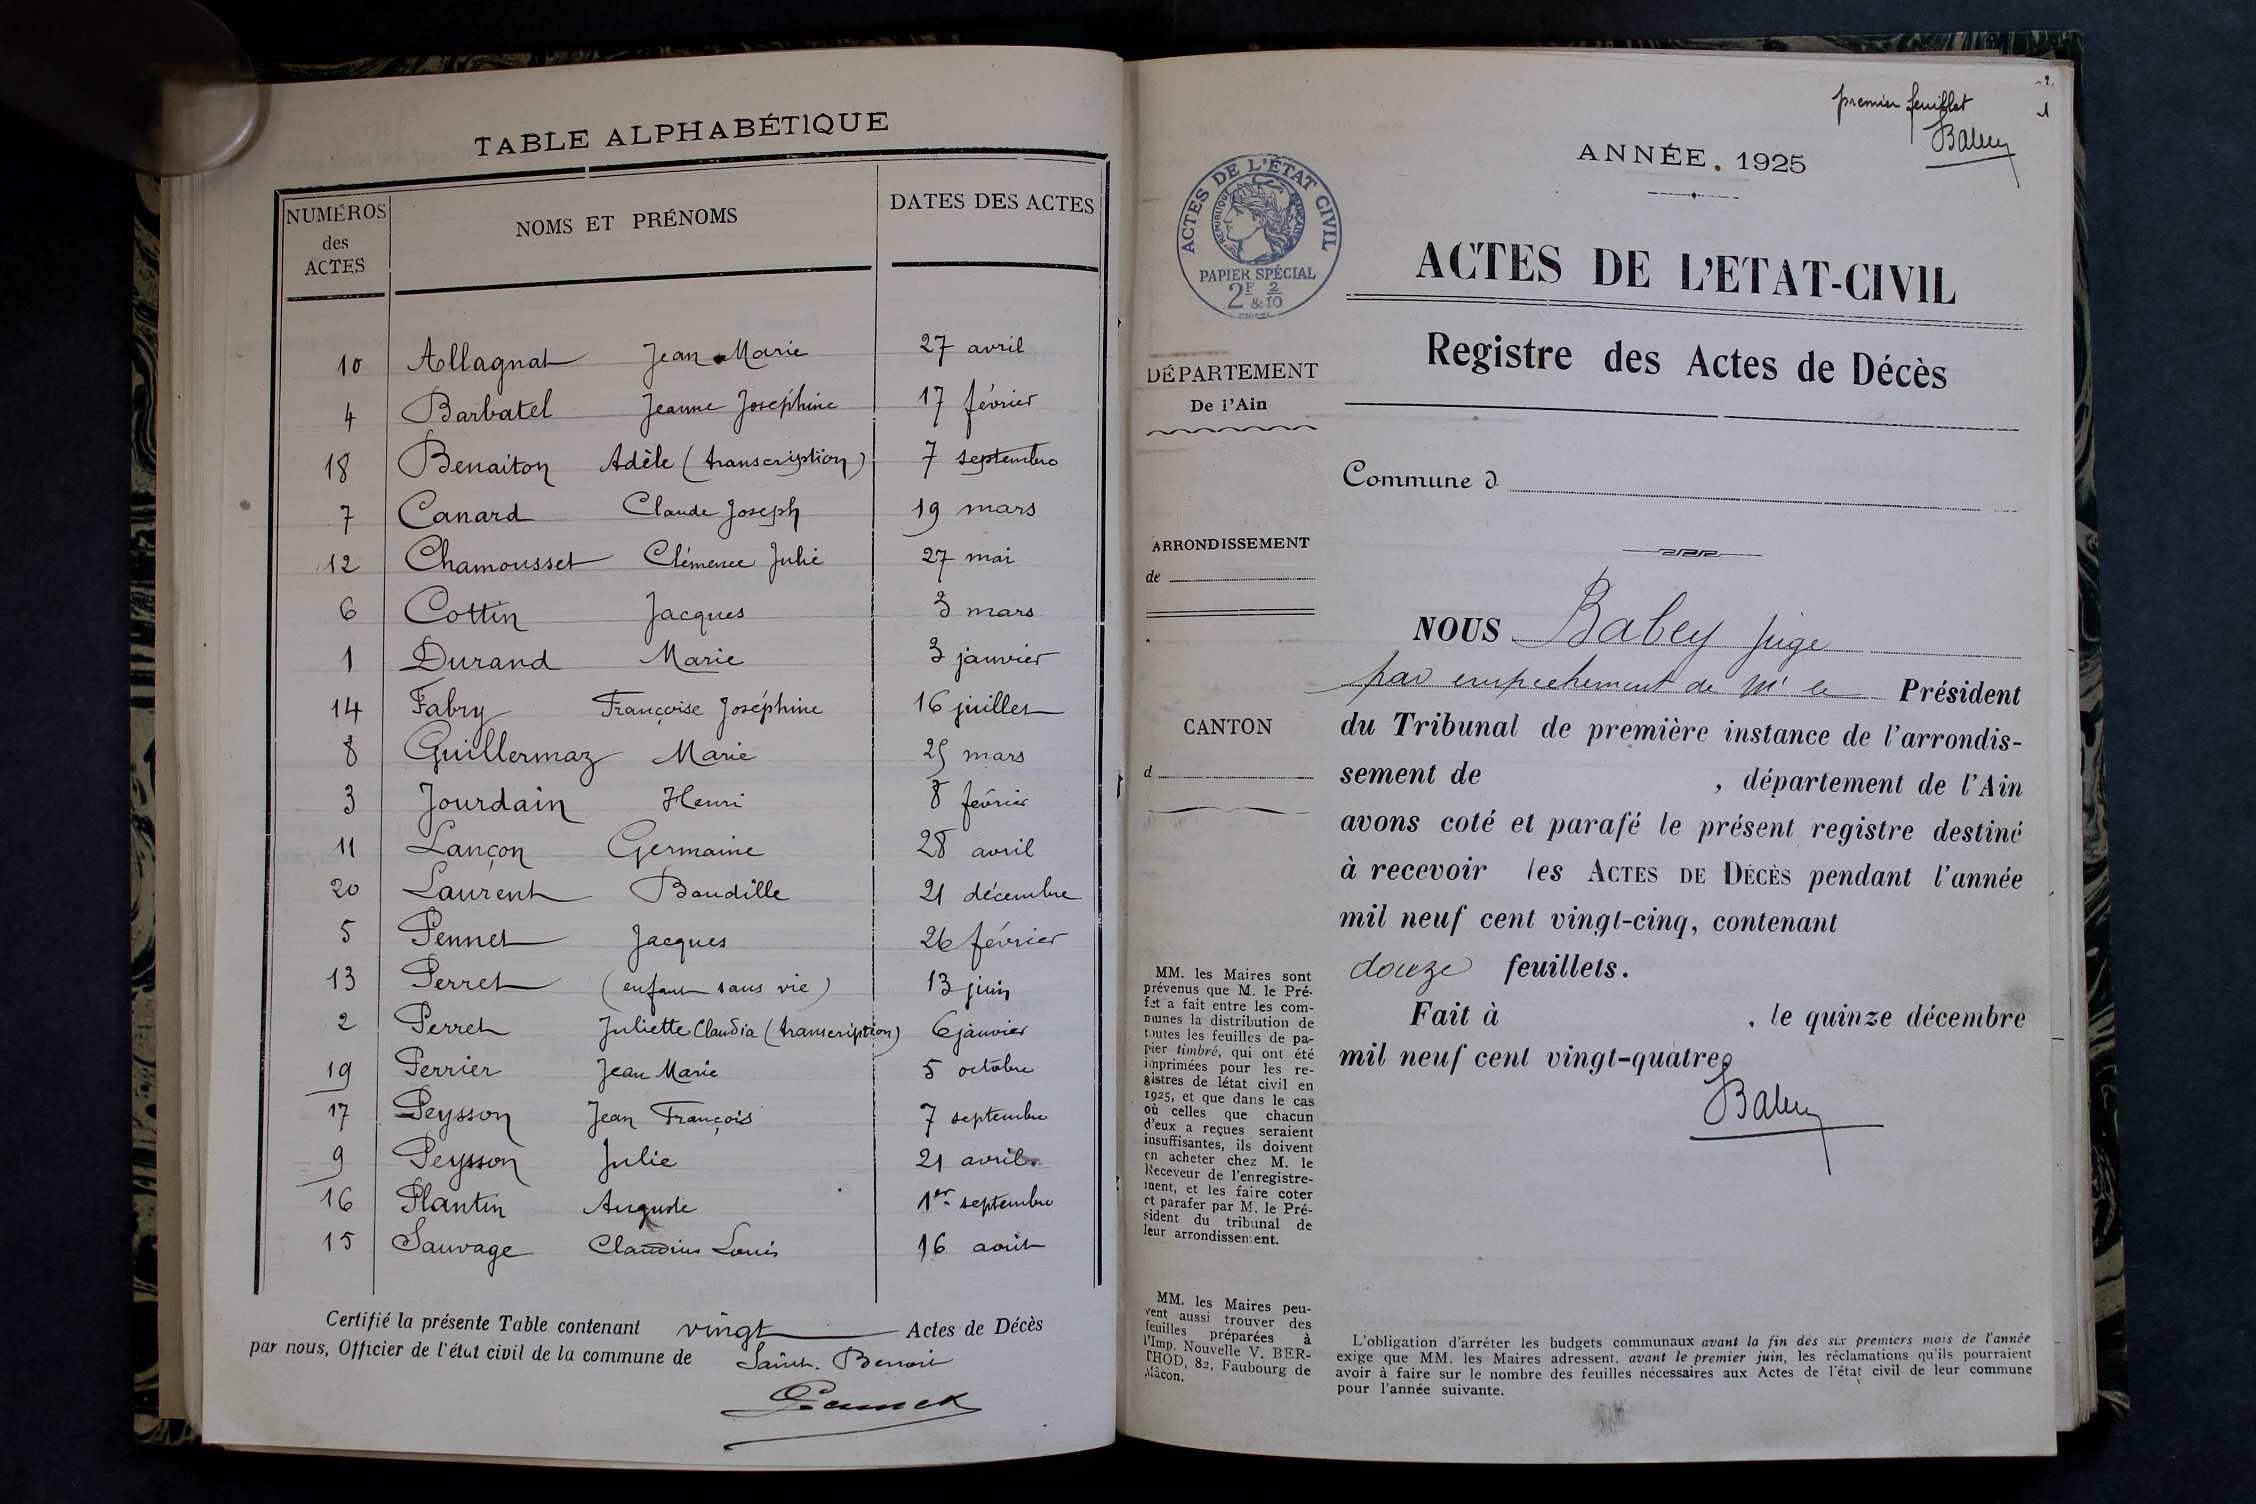 TABLE ALPHABÉTIQUE
NUMÉROS des ACTES NOMS ET PRÉNOMS DATES DES ACTES
10 Allagnat Jean Marie 27 avril
4 Barbatel Jeanne Joséphine 17 février
18 Benaiton Adèle (transcription) 7 septembre
7 Canard Claude Joseph 19 mars
12 Chamousset Clémence Julie 27 mai
6 Cottin Jacques 3 mars
1 Durand Marie 3 janvier
14 Fabry Françoise Joséphine 16 juillet
8 Guillermaz Marie 25 mars
3 Jourdain Henri 8 février
11 Lançon Germaine 28 avril
20 Laurent Baudille 21 décembre
5 Pennet Jacques 26 février
13 Perret (enfant sans vie) 13 juin
2 Perret Juliette Claudia (transcription) 6 janvier
19 Perrier Jean Marie 5 octobre
17 Peysson Jean François 7 septembre
9 Peysson Julie 21 avril
16 Plantin Auguste 1er septembre
15 Sauvage Claudius Louis 16 août
Certifié la présente Table contenant vingt Actes de Décès
par nous, Officier de l'état civil de la commune de Saint-Benoit
premier feuillet 1
Babey
ANNÉE. 1925
ACTES DE L'ÉTAT CIVIL
RÉPUBLIQUE FRANÇAISE
PAPIER SPÉCIAL
2F & 2/10
ACTES DE L'ETAT-CIVIL
Registre des Actes de Décès
DÉPARTEMENT
De l'Ain
Commune d
ARRONDISSEMENT
de
CANTON
d
NOUS Babey juge
par empechement de Mr le Président
du Tribunal de première instance de l'arrondis-
sement de , département de l'Ain
avons coté et parafé le présent registre destiné
à recevoir les ACTES DE DÉCÈS pendant l'année
mil neuf cent vingt-cinq, contenant
douze feuillets.
Fait à , le quinze décembre
mil neuf cent vingt-quatre
Babey
MM. les Maires sont
prévenus que M. le Pré-
fet a fait entre les com-
munes la distribution de
toutes les feuilles de pa-
pier timbré, qui ont été
imprimées pour les re-
gistres de létat civil en
1925, et que dans le cas
où celles que chacun
d'eux a reçues seraient
insuffisantes, ils doivent
en acheter chez M. le
Receveur de l'enregistre-
ment, et les faire coter
et parafer par M. le Pré-
sident du tribunal de
leur arrondissement.
MM. les Maires peu-
vent aussi trouver des
feuilles préparées à
l'Imp. Nouvelle V. BER-
THOD, 82, Faubourg de
Mâcon.
L'obligation d'arrêter les budgets communaux avant la fin des six premiers mois de l'année
exige que MM. les Maires adressent, avant le premier juin, les réclamations qu'ils pourraient
avoir à faire sur le nombre des feuilles nécessaires aux Actes de l'état civil de leur commune
pour l'année suivante.